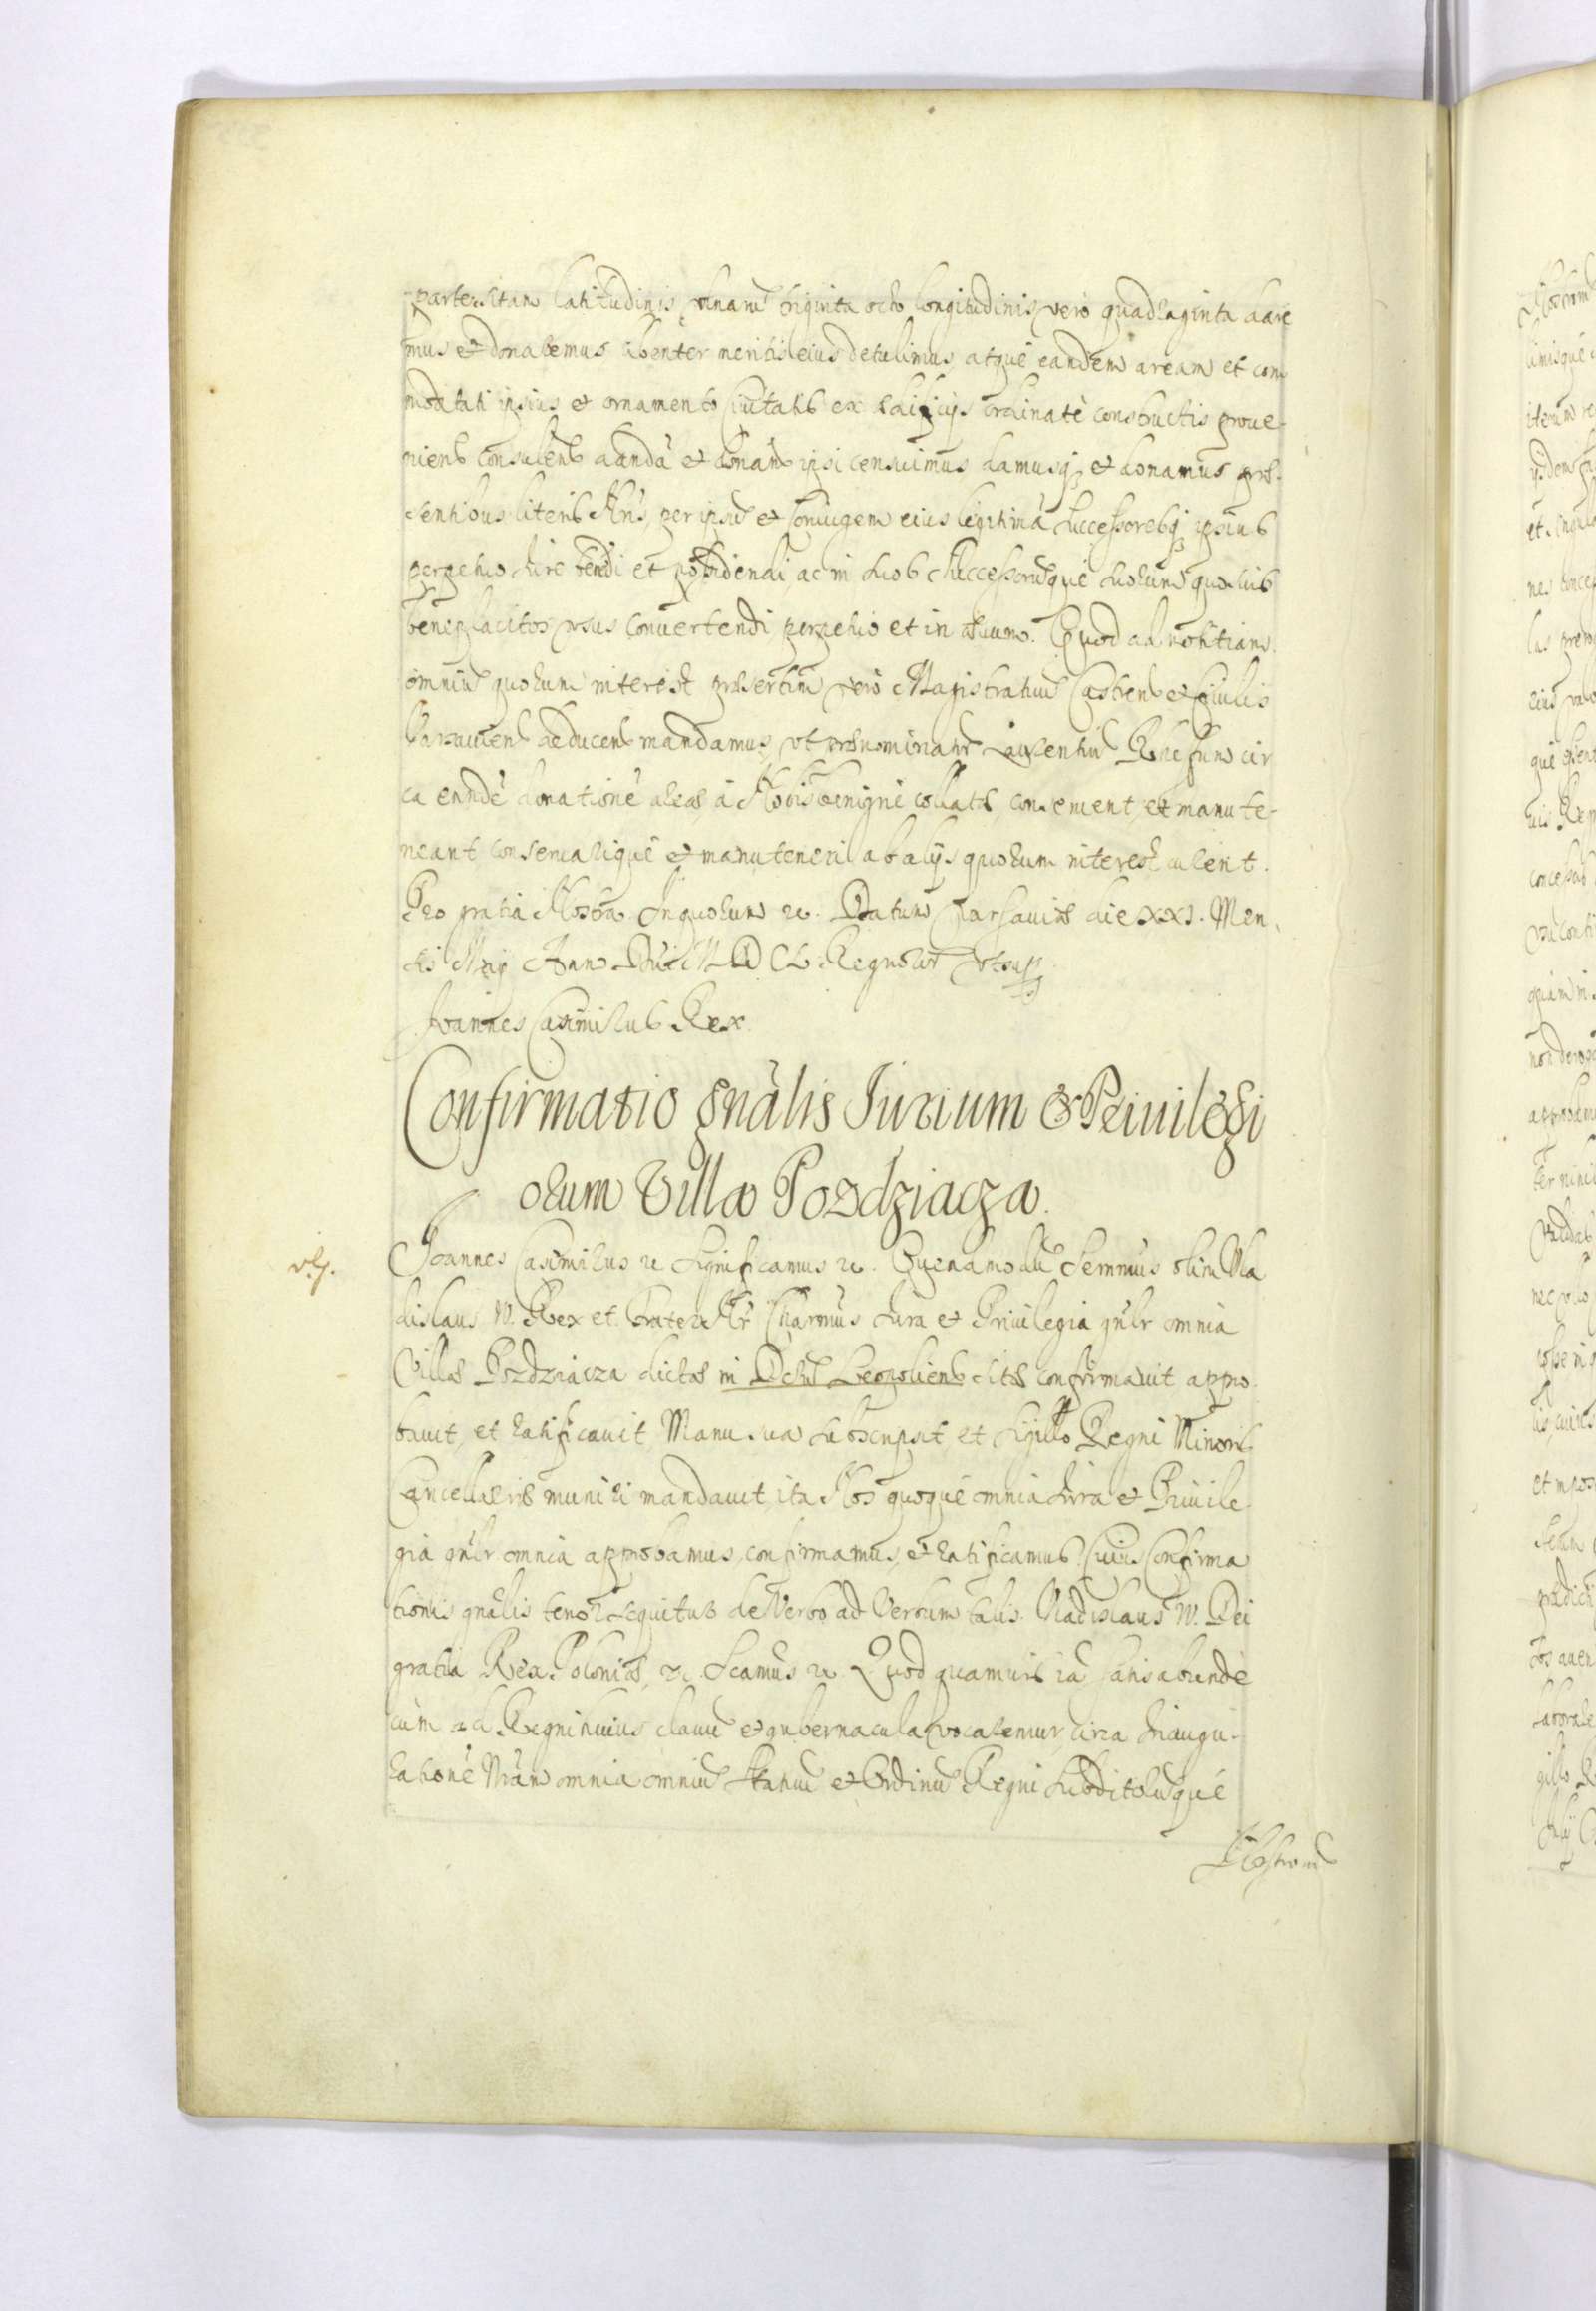 parte sitam latitudinis ulnarũ triginta octo longitudinis vero quadraginta dare
mus et donaremus libenter meritis eius detulimus, atque eandem aream et com
moditati ipsius et ornamento Ciuitatis ex ędificijs ordinatè constructis proue-
nienti consulens dandã et donandã ipsi censuimus damusq; et donamus præ-
sentibus literis Nris, per ipsũ et Coniugem eius legitimã Successoresq; ipsius
perpetuo Jure tenendi et possidendi, ac in suos Successorũque suorum quosuis
beneplacitos usus conuertendi perpetuo et in æuum. Quod ad notitiam
omniũ quorum interest præsertim vero Magistratuũ Castren et Ciuilis
Varsauien deducen mandamus, ut prænominatũ Laurentiũ circ
ca eandẽ donationẽ areæ, à Nobis benigne collatæ, conseruent, et manute-
neant, conseruarique et manuteneri ab alijs quorum interest curent.
Pro gratia Nostra. In quorum &c. Datum Varsauiæ die XXI. Men.
sis Maij Anno Dni MDCL. Regnorũ utsup
Joannes Casimirus Rex.
Confirmatio gñalis Jurium & Priuilegi
orum Villæ Pozdziacza.
Joannes Casimirus &c Significamus &c. Quemadmodũ Sermus olim Vla
dislaus IV. Rex et Frater Nr Charmus Jura et Priuilegia gnlr omnia
Villæ Pozdziacza dictæ in Districtũ Leopolien sitæ confirmauit appro-
bauit, et ratificauit, Manu sua subscripsit et Sigillo Regni Minoris
Cancellariæ muniri mandauit, ita Nos quoque omnia Jura et Priuile-
gia gnlr omnia approbamus, confirmamus, et ratificamus. Cuius Confirma
tionis gñalis tenor sequitur de Verbo ad Verbum talis. Vladislaus IV. Dei
gratia Rex Poloniæ, &c. Scamus &c. Quod quamuis iã satis abunde
cum ad Regni huius clauũ et gubernacula vocaremur, circa Inaugu-
rationẽ Nram omnia omniũ Statuũ et Ordinũ Regni Subditorũque
Nostrorũ